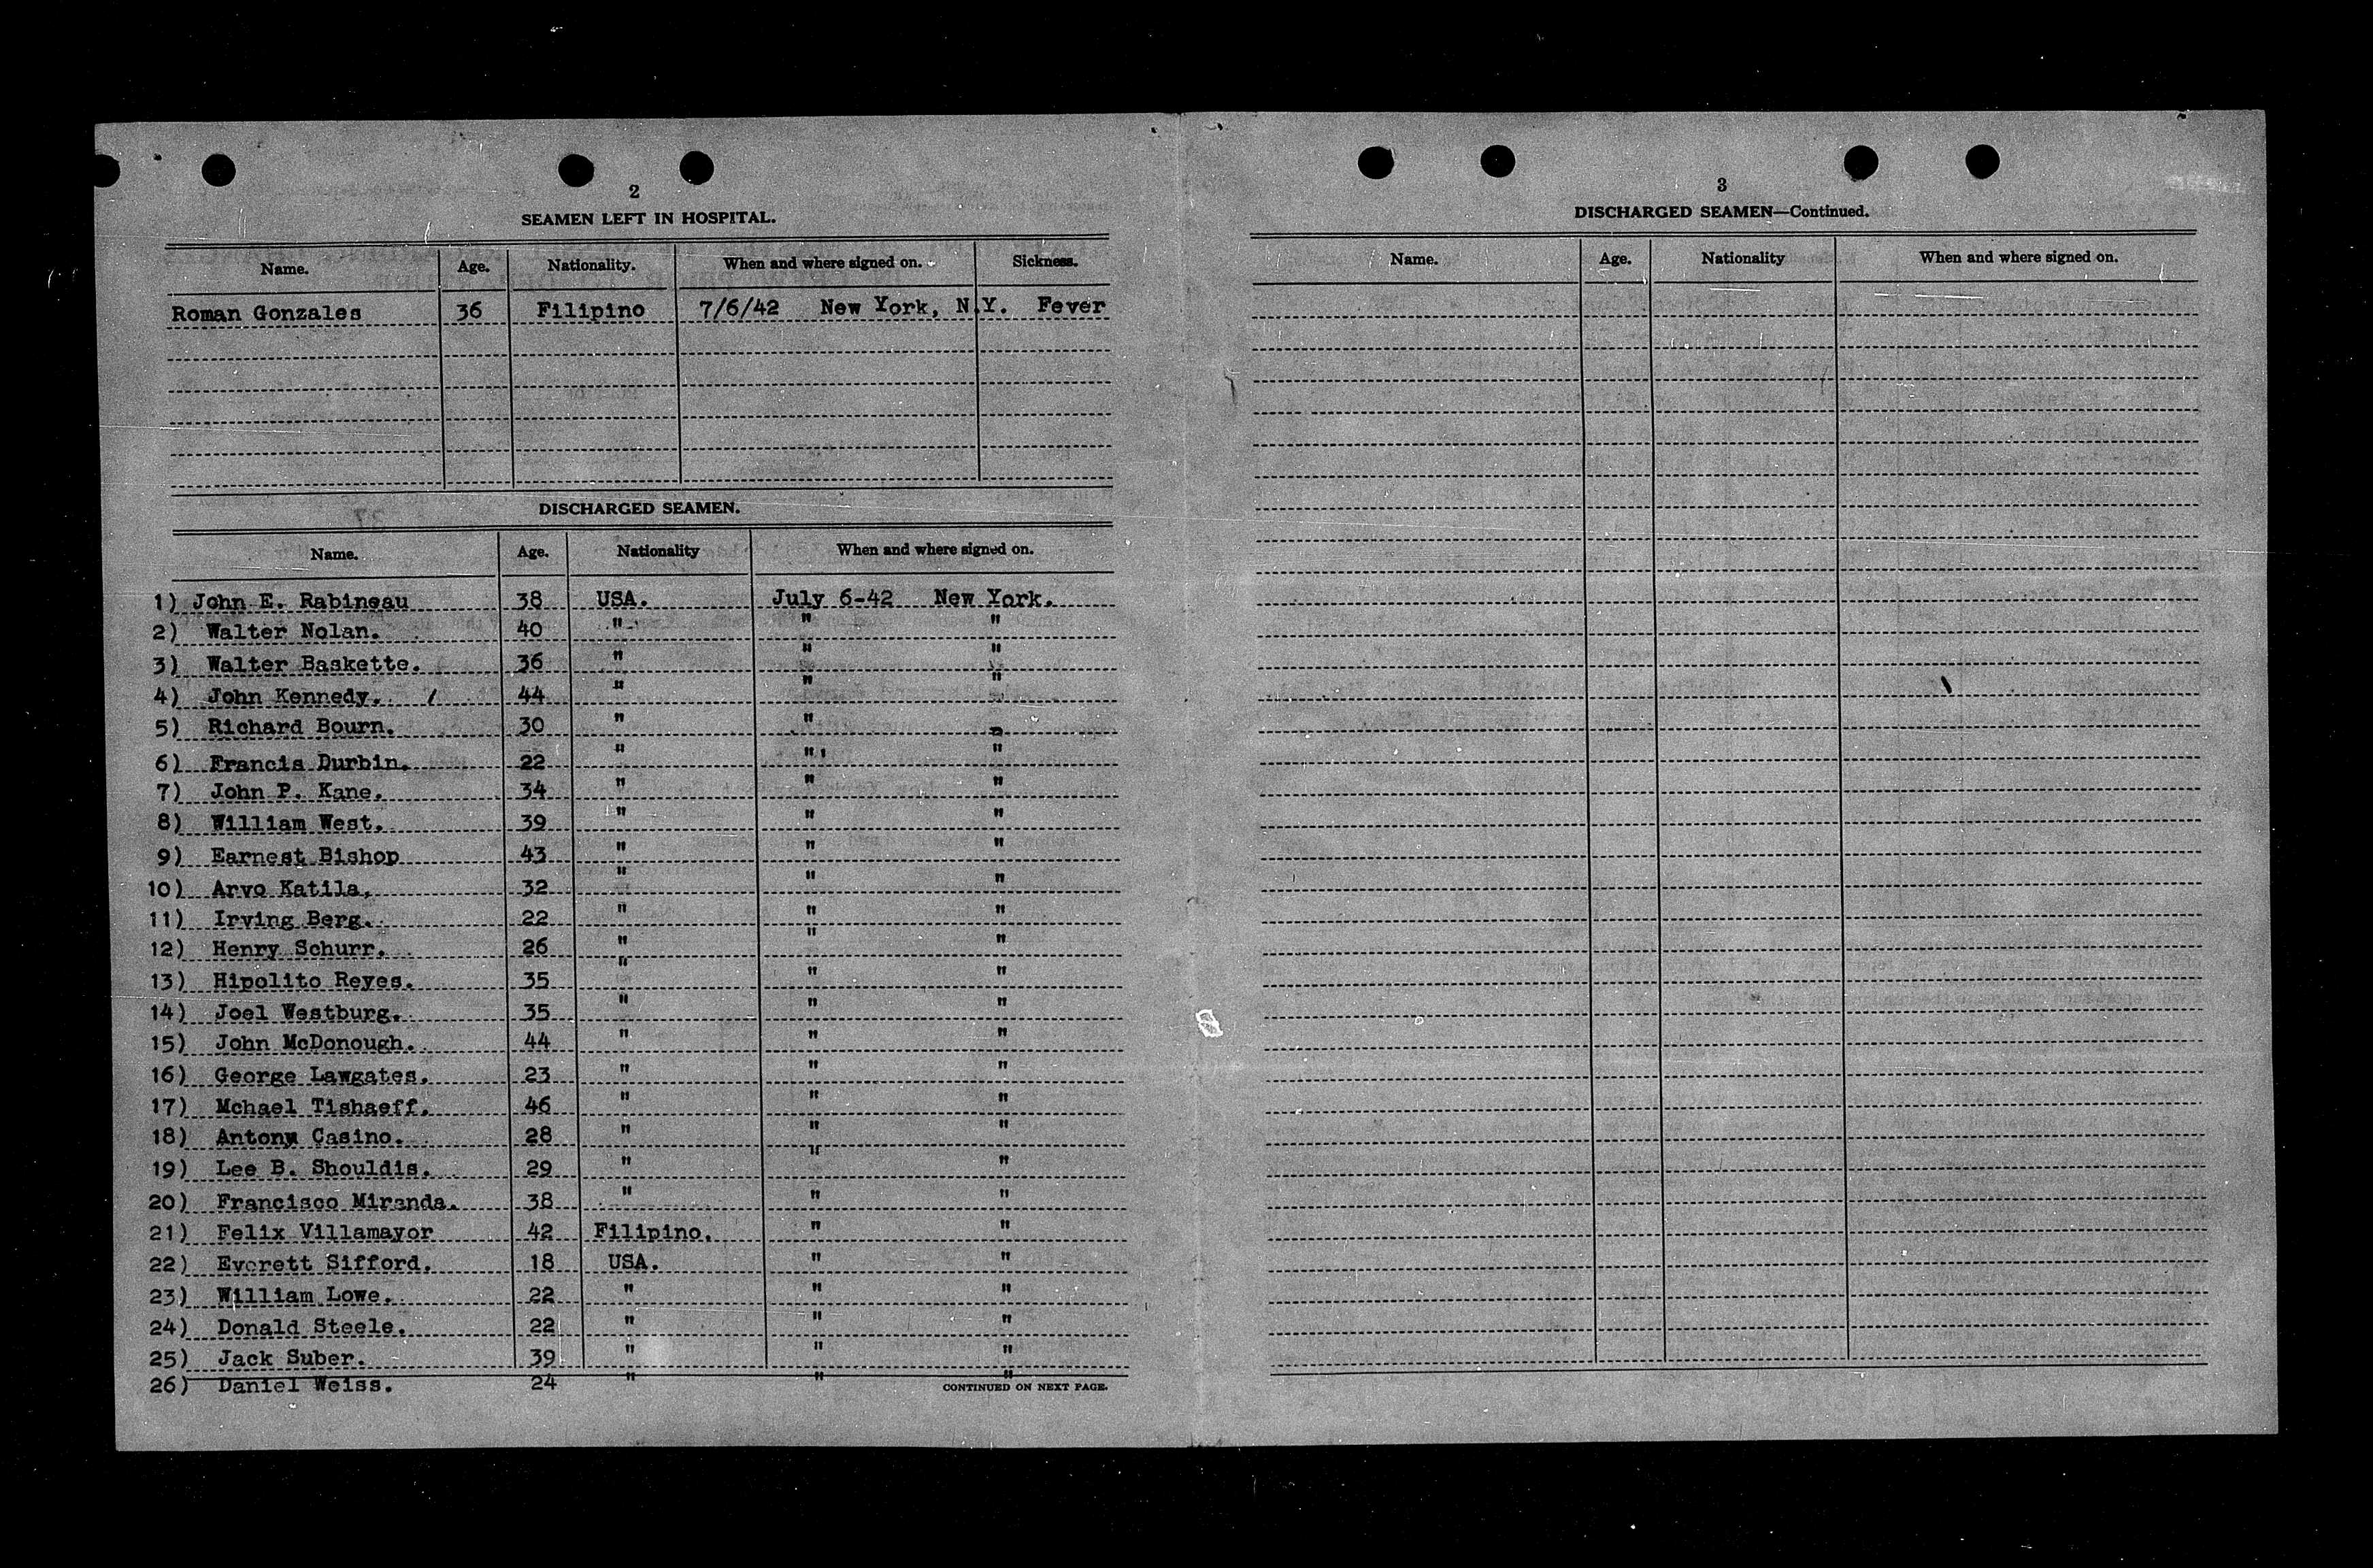 2
SEAMEN LEFT IN HOSPITAL.
Name. Age. Nationality. When and where signed on. Sickness.
Roman Gonzales 36 Filipino 7/6/42 New York, N.Y. Fever
DISCHARGED SEAMEN.
Name. Age. Nationality When and where signed on.
1) John E. Rabineau 38 USA. July 6-42 New York.
2) Walter Nolan. 40 " " "
3) Walter Baskette. 36 " " "
4) John Kennedy. / 44 " " "
5) Richard Bourn. 30 " " "
6) Francis Durbin. 22 " " "
7) John P. Kane. 34 " " "
8) William West. 39 " " "
9) Earnest Bishop 43 " " "
10) Arvo Katila, 32 " " "
11) Irving Berg. 22 " " "
12) Henry Schurr. 26 " " "
13) Hipolito Reyes. 35 " " "
14) Joel Westburg. 35 " " "
15) John McDonough. 44 " " "
16) George Lawgates. 23 " " "
17) Mchael Tishaeff. 46 " " "
18) Antony Casino. 28 " " "
19) Lee B. Shouldis. 29 " " "
20) Francisco Miranda. 38 " " "
21) Felix Villamayor 42 Filipino. " "
22) Everett Sifford. 18 USA. " "
23) William Lowe. 22 " " "
24) Donald Steele. 22 " " "
25) Jack Suber. 39 " " "
26) Daniel Weiss. 24 " " "
CONTINUED ON NEXT PAGE.
3
DISCHARGED SEAMEN—Continued.
Name. Age. Nationality When and where signed on.